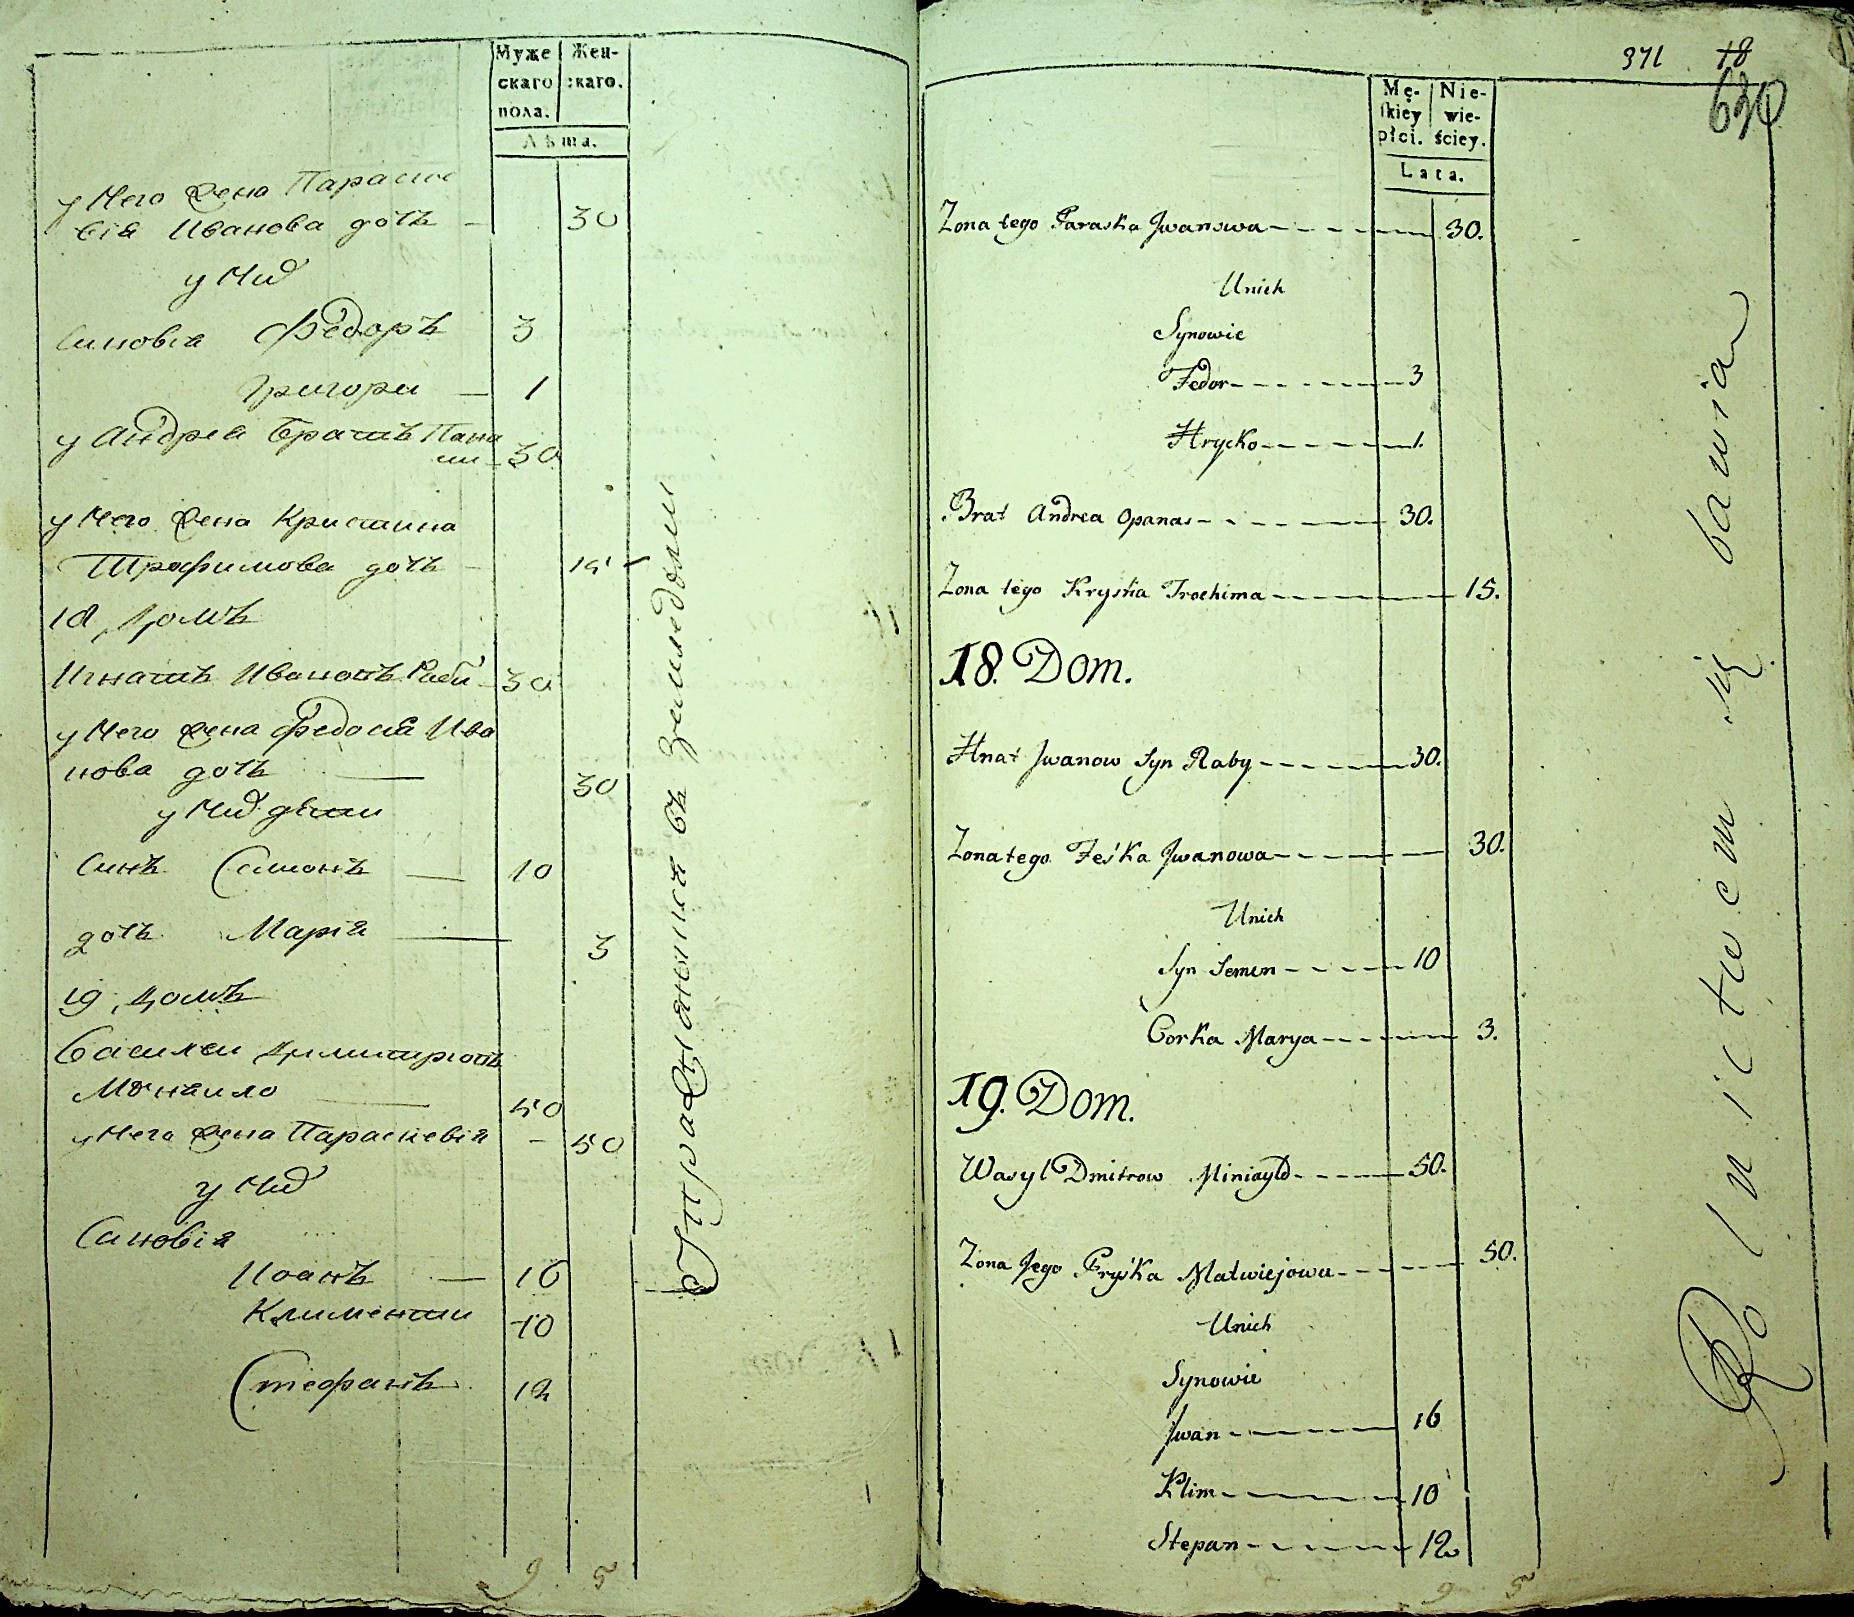 Муже
скаго
пола.
Жен-
скаго.
Лѣта.
у Него жена Параске
вія Иванова дочь — 30
у Них
Синовіа Феборъ 3
Григори — 1
у Андреа братъ Пана
си — 30
у Него жена Кристина
Трофимова дочь — 15
18 Домъ
Игнатъ Ивановъ Раби — 30
у Него жена Федосіа Ива
нова дочь — 30
у Них дѣти
Синъ Семионъ — 10
дочь Маріа — 3
19 Домъ
Василеи Димитріовъ
— 50
у Него жена Параскевіа — 50
у Них
Синовіа
Иоанъ — 16
Климентии 10
Стефанъ 12
9 5
Упражнаютца въ
371 18
630
Mę-
ſkiey
płci.
Nie-
wie-
ściey.
Lata.
Zona tego Paraska Jwanowa 30.
Unich
Synowie
Fedor 3
Hrycko 1.
Brat Andrea Opanas 30.
Zona tego Kryśka Trochima 15.
18. Dom.
Hnat Jwanow Syn Raby 30.
Zona tego Feśka Jwanowa 30.
Unich
Syn Semen 10
Corka Marya 3.
19. Dom.
Wasyl Dmitrow Miniayło 50.
Zona Jego Pryśka Matwiejowa 50.
Unich
Synowie
Jwan 16
Klim 10
Stepan 12
9 5
Rolnictwem się bawia